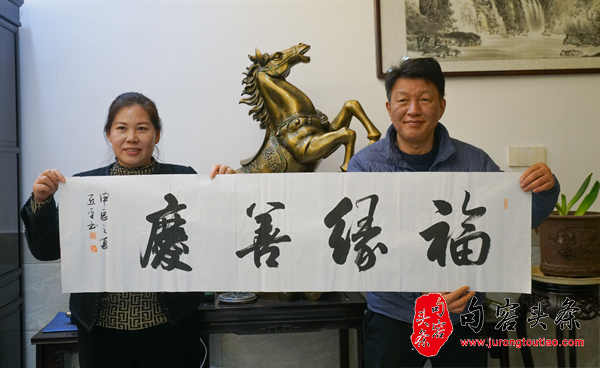 福缘善慶
甲辰之夏
句容头条
句容头条
www.jurongtoutiao.com